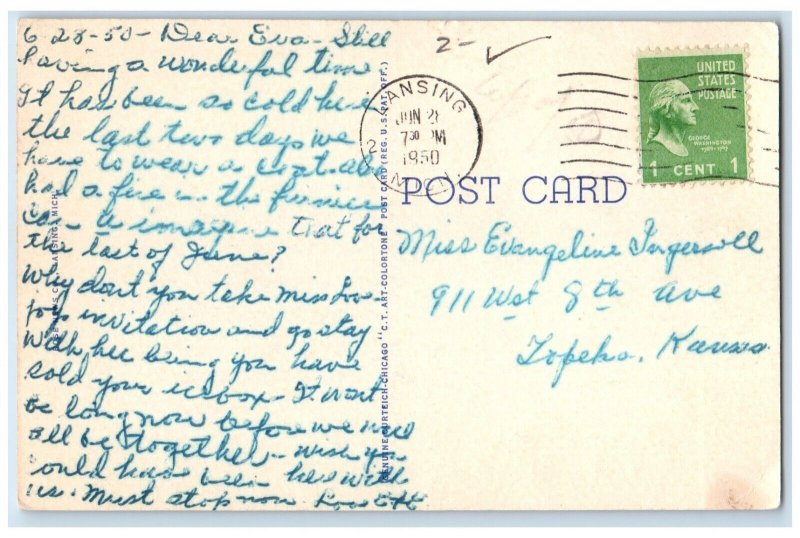 6-28-50- Dear Eva- Still
having a wonderful time
It has been so cold here
the last two days we
have to wear a coat. also
had a fire in the furnace
can u imagine that for
the last of June?
Why don't you take Miss
invitation and go stay
with her being you have
sold your icebox- It wont
be long now before we will
all be together- wish you
could have been here with
us. Must stop now Love
2-
LANSING
JUN 28
7 30 PM
1950
MICH
UNITED
STATES
POSTAGE
GEORGE
WASHINGTON
1789-1797
1 CENT 1
POST CARD
Miss Evangeline Ingersoll
911 West 8th Ave
Topeka, Kansas
GENUINE CURTEICH-CHICAGO "C.T. ART-COLORTONE" POST CARD (REG. U.S. PAT. OFF.)
LANSING, MICH.